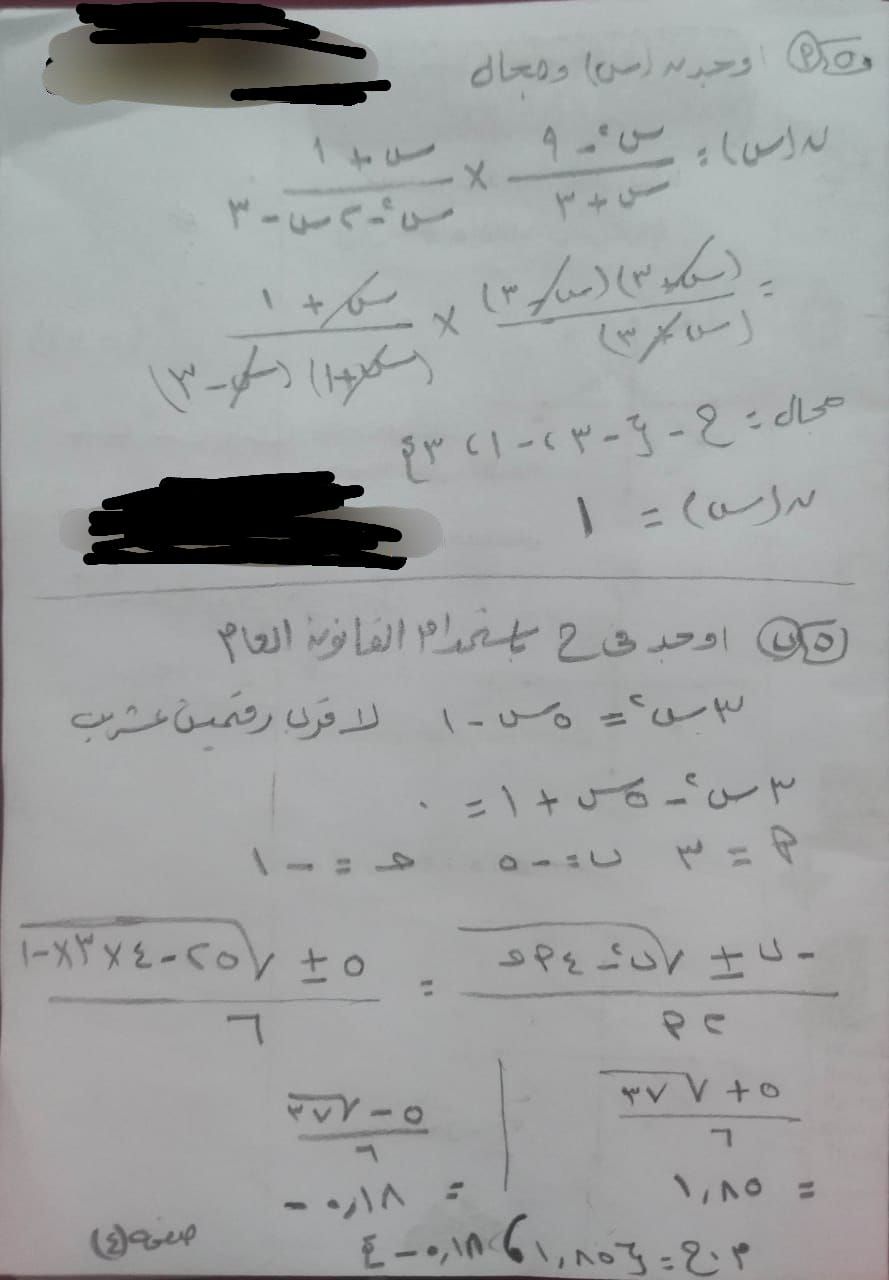 س٥ (٩) اوجد ن(س) ومجال
ن(س) = (س² - ٩)/(س + ٣) × (س + ١)/(س² - ٢س - ٣)
= (س + ٣)(س - ٣)/(س + ٣) × (س + ١)/(س + ١)(س - ٣)
مجال = ح - {-٣، -١، ٣}
ن(س) = ١
٥ (ب) اوجد فى ح باستخدام القانون العام
٣س² = ٥س - ١ لا قرب رقمين عشرب
٣س² - ٥س + ١ = ٠
٩ = ٣ ب = -٥ هـ = -١
(-ب ± √(ب² - ٤٩هـ))/٢٩ = (٥ ± √(٢٥ - ٤×٣×-١))/٦
(٥ + √٣٧)/٦ | (٥ - √٣٧)/٦
= ١,٨٥ | = -٠,١٨
م.ح = {١,٨٥، -٠,١٨}
صفحة (٤)